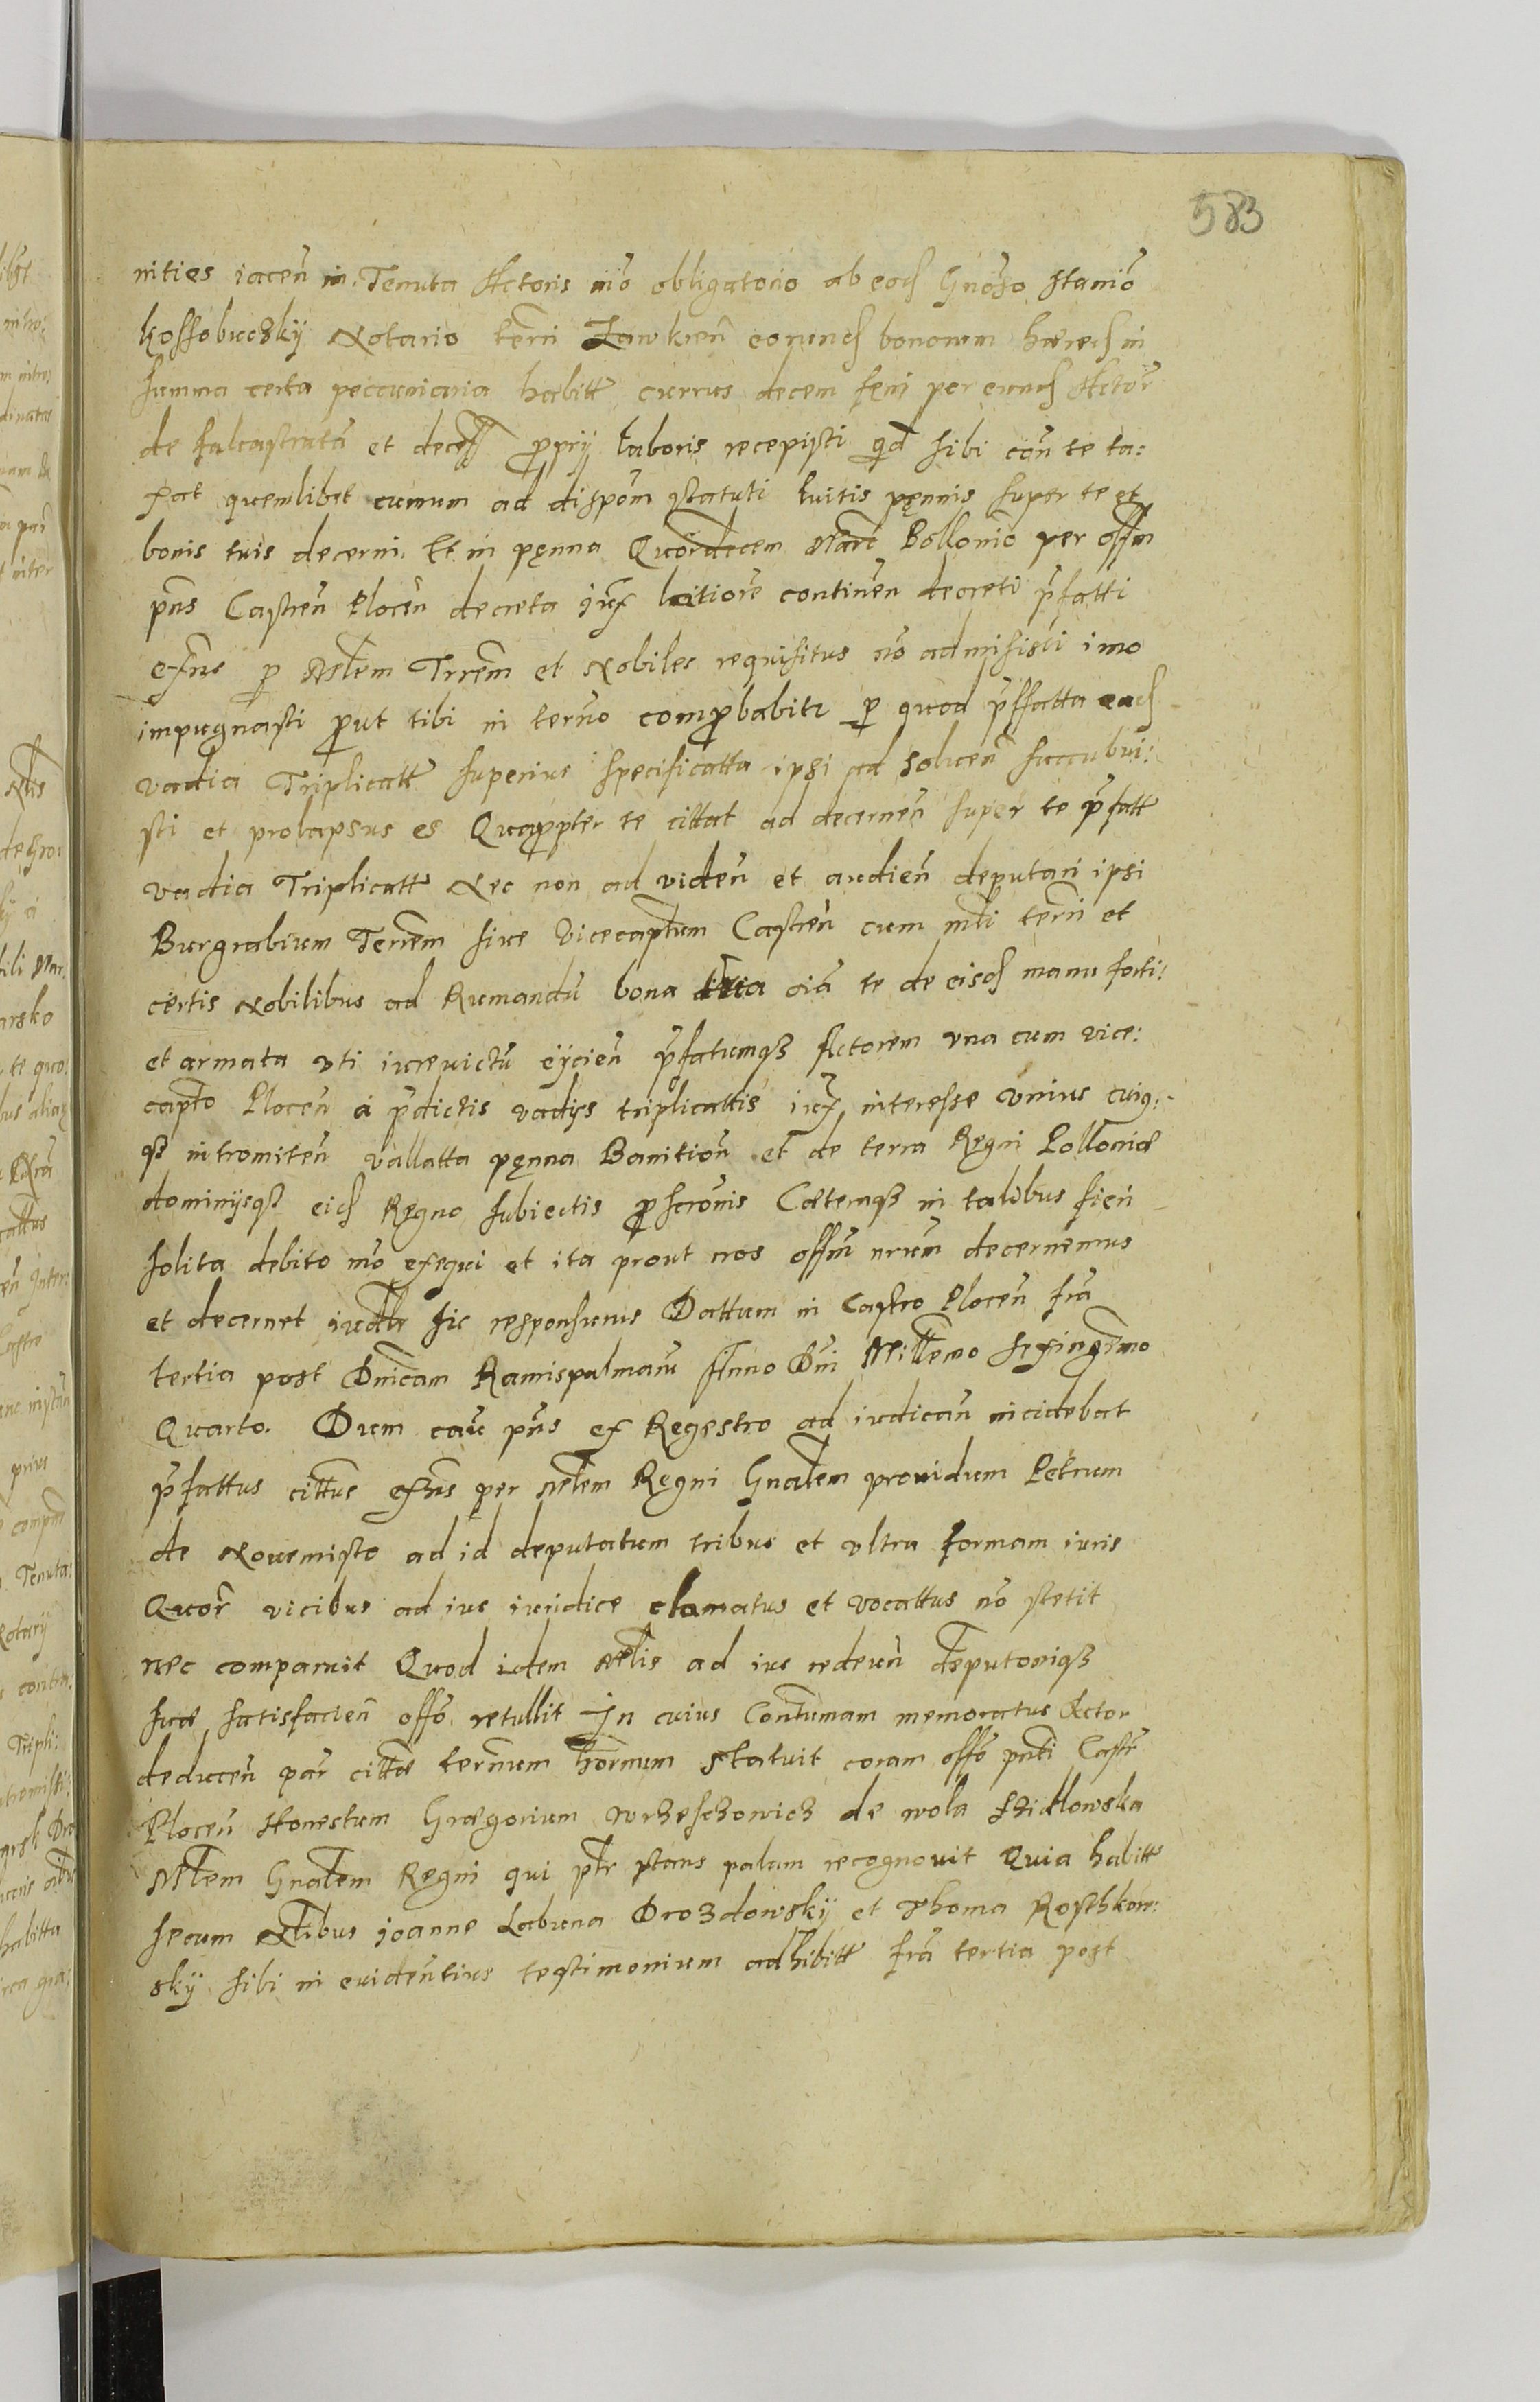 583
nities iacen̄ in Tenuta Actoris mō obligatorio ab eod Gnōso Stanīo
Kossobudzky Notario terrī Zawkren̄ eorund bonorum hæred in
summa certa pecuniaria habitt currus decem feni per eund Actor̄
de falcastratā et decess proprij laboris recepisti qd sibi con̄ te ta:
xat quemlibet currum ad dispom̄ statuti luitis pęnnis super te et
bonis tuis decerni. Et in pęnna Quordecem Marc̄ Pollonic̄ per offm̄
pn̄s Castren̄ Plocen̄ decreta iux latiorē continen̄ decreti p̄fatti
exn̄s p Mlem̄ Trrem̄ et Nobiles requisitus nō admisisti imo
impugnasti prout tibi in termo comprobabitr p quod p̄ffatta ead
vadia Triplicatt superius specificatta ipsi ad solucen̄ succubui:
sti et prolapsus es Quapropter te cittat ad decernen̄ super te p̄fatt
vadia Triplicatt Nec non ad viden̄ et audien̄ deputari ipsi
Burgrabium Terrem̄ siue Vicecaptum Castren̄ cum mlī terrī et
certis Nobilibus ad Rumandū bona oiā te de eisd manu forti:
et armata vti iureuictū eijcien̄ p̄fatumq3 Actorem vna cum vice:
capto Plocen̄ á p̄dictis vadijs triplicattis iux interesse vnius cuiq:
q3 intromiten̄ vallatta pęnna Banition̄ et de terra Regni Polloniæ
dominijsq3 eid Regno subiectis proscronis Cæteraq3 in talibus fieri
solita debito mō exequi et ita prout nos offm̄ nr̄um decernemus
et decernet iudlr sis responsurus Dattum in Castro Plocen̄ frā
tertia post Dnīcam Ramispalmarū Anno Dnī Millemo sexingmo
Quarto. Dum caū pn̄s ex Regestro ad iudican̄ incidebat
p̄fattus cittus exn̄s per Mlem̄ Regni Gnalem̄ prouidum Petrum
de Nouemisto ad id deputatum tribus et vltra formam iuris
Quor̄ vicibus ad ius iuridice clamatus et vocattus nō stetit
nec comparuit Quod idem Mlis ad ius redeun̄ deputoniq3
suæ satisfacien̄ offō retullit In cuius Contumam memoratus Actor
deducen̄ par̄ cittæ ternum hornum Statuit coram offō pntī Castr̄
Plocen̄ Honestum Grægorium Wrzeschowicz de Wola Szidlowska
Mlem̄ Gnalem̄ Regni qui ptr stans palam recognouit Quia habitt
secum Nlibus Joanne Labuna Drozdowskij et Thoma Roschkow:
skij sibi in euidentius testimonium adhibitt frā tertia post